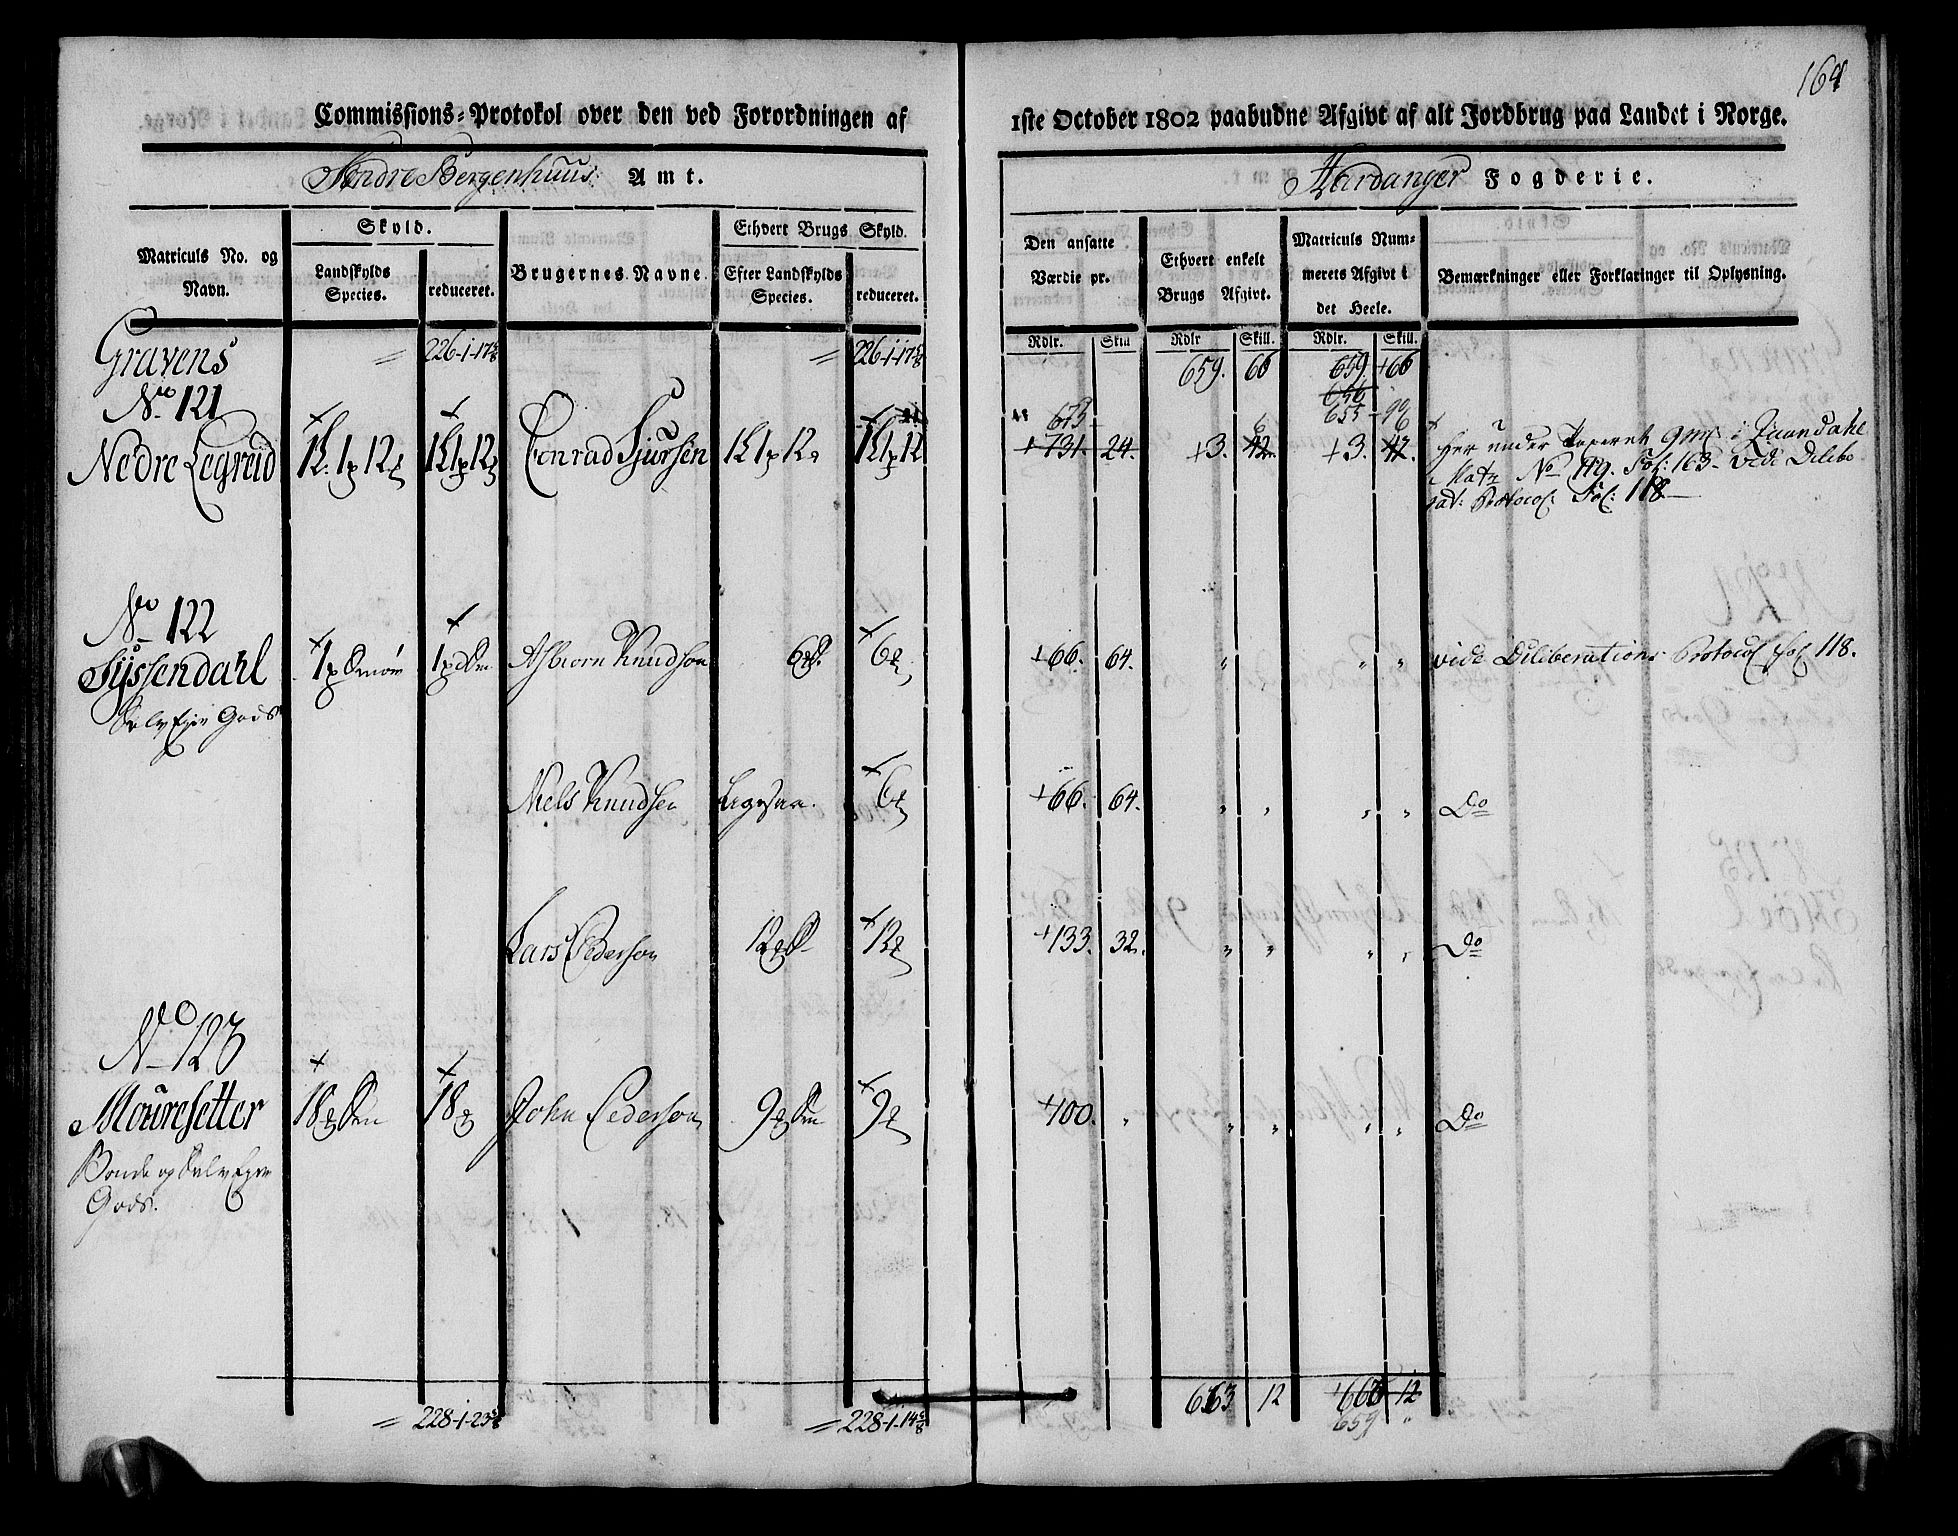 164
Commissions-Protokol over den ved Forordningen af 1ste October 1802 paabudne Afgivt af alt Jordbrug paa Landet i Norge.
Søndre Bergenhuus Amt. Hardanger Fogderie.
Matriculs No. og Navn.
Skyld.
Landskylds Species.
reduceret.
Brugernes Navne.
Ethvert Brugs Skyld.
Efter Landskylds Species.
reduceret.
Den ansatte Værdie pr.
Ethvert enkelt Brugs Afgivt.
Matriculs Nummerets Afgivt i det Heele.
Bemærkninger eller Forklaringer til Oplysning.
Rdlr. Skill Rdlr Skill. Rdlr. Skill.
Gravens 226-1-17 226-1-17 659. 66 659 +66
656
655-99
No 121
Nedre Legreid 1 L. 1 p 12 1 L 1 p 12 Conrad Sjursen 1 L 1 p 12 1 L 1 p 12 675
+731. 24. +3. 42 +3. 42.
Her under i Matr No 119. Fol: 163. vide Delibe
rat: Protocol: Fol: 118
No 122
Syssendahl 1 p Smør 1 p Sm Asbiørn Knudsen 6 S. 6 +66. 64. " " " vide Deliberations Protocol Fol 118.
Selv Ejer Gods
Niels Knudsen Ligesaa. 6 +66. 64. " " " " Do
Lars Pederson 12 S 12 +133. 32. " " " " Do
No 123
Mouresetter 18 Sm 18 John Pederson 9 Sm 9 +100. " " " " " Do
Bonde og Selv Ejer
Gods.
228-1-23 228-1-14 663 12 +660 12
659 "